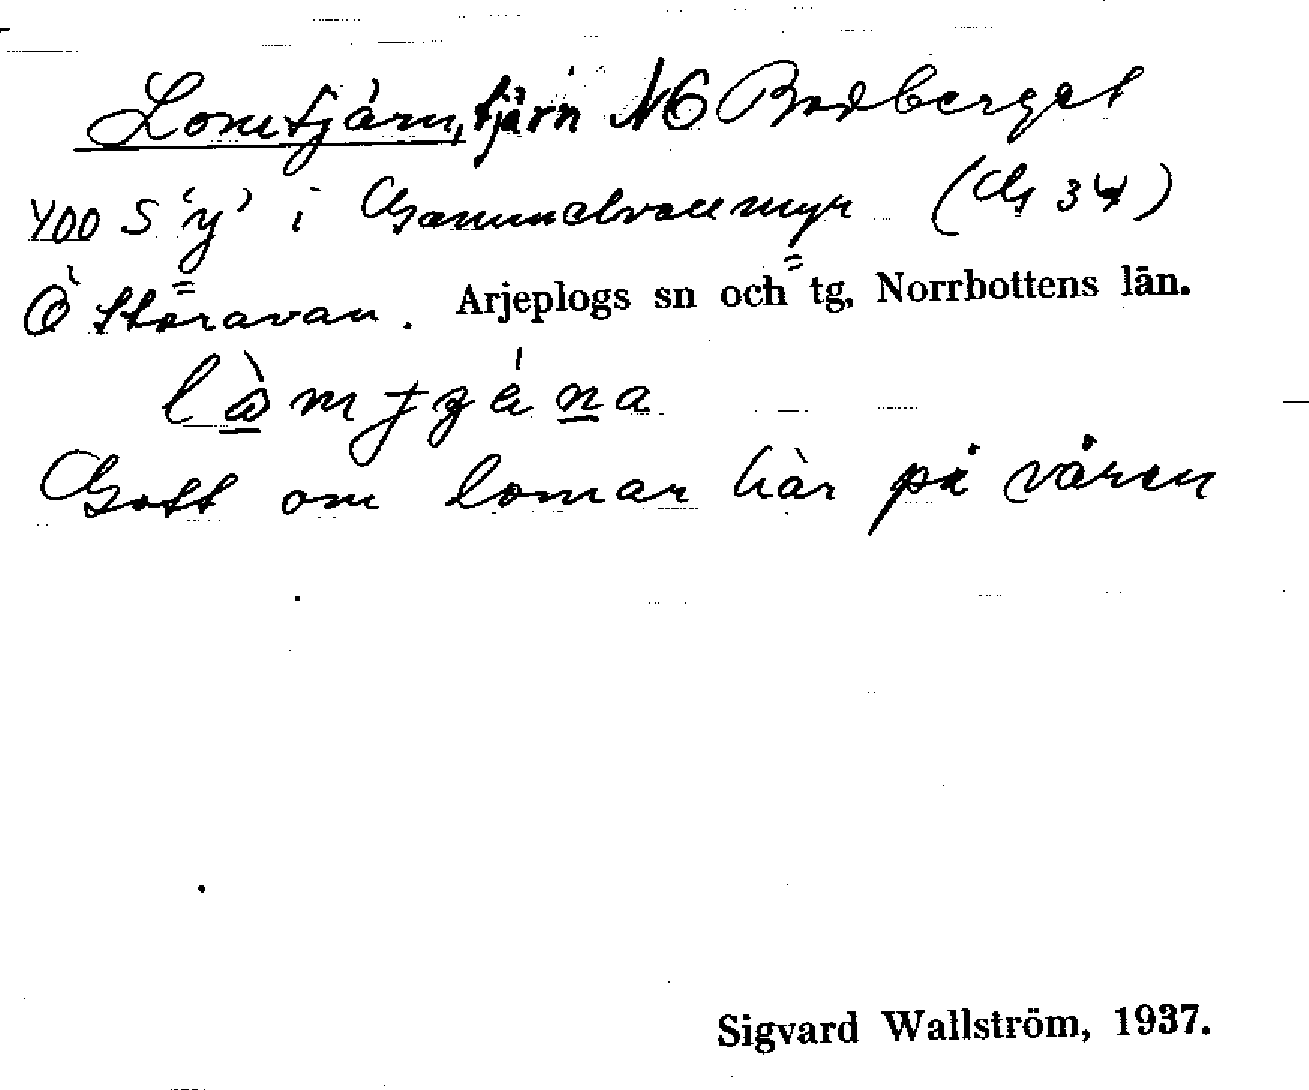 Lomtjärn, tjärn NO Bodberget
400 S 'y' i Gammelvallmyr (G 34)
Ö Storavan. Arjeplogs sn och tg. Norrbottens län.
Gott om lomar här på våren
Sigvard Wallström, 1937.